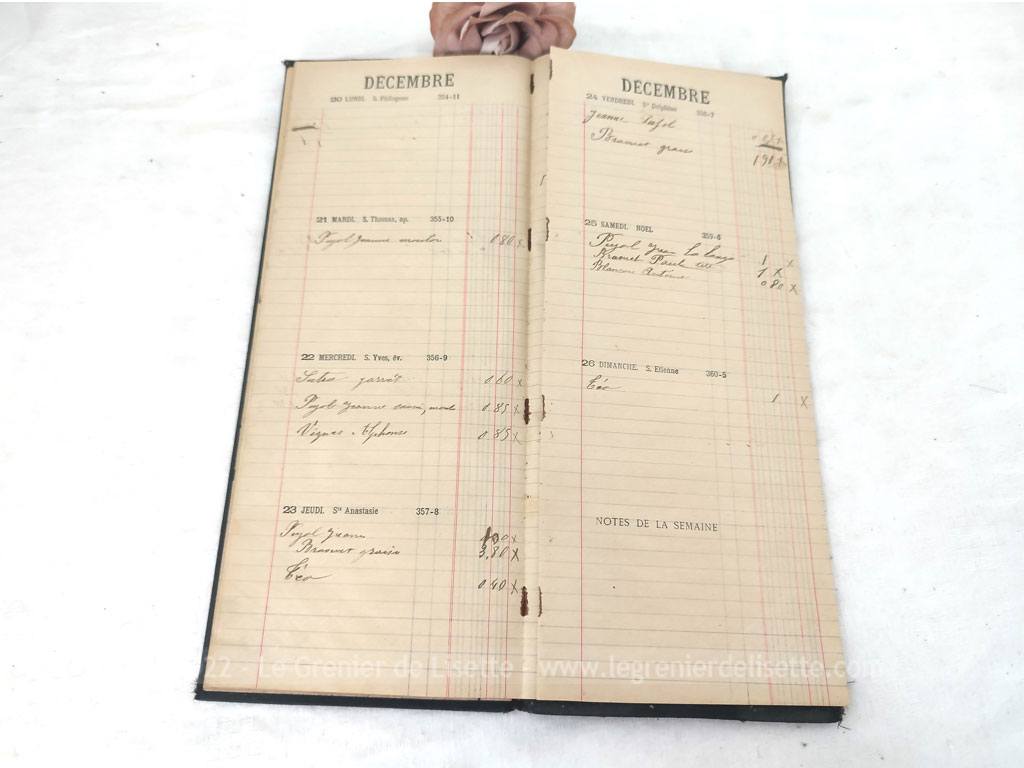 DÉCEMBRE
20 LUNDI. S. Philogone 354-11
21 MARDI. S. Thomas, ap. 355-10
Pujol Jeanne mouton 0.80 x
22 MERCREDI. S. Yves, év. 356-9
jarrêt 0.60 x
Pujol Jeanne 0.85 x
Vignes Alphonse 0.85 x
23 JEUDI. Ste Anastasie 357-8
Pujol x
Bramet 3.80 x
Téo 0.40 x
DÉCEMBRE
24 VENDREDI. Ste Delphine 358-7
Jeanne Pujol
Bramet
25 SAMEDI. NOEL 359-6
Pujol 1 x
Bramet Paul 1 x
Blancou Antoine 0.80 x
26 DIMANCHE. S. Etienne 360-5
Téo 1 x
NOTES DE LA SEMAINE
22 - Le Grenier de Lisette - www.legrenierdelisette.com